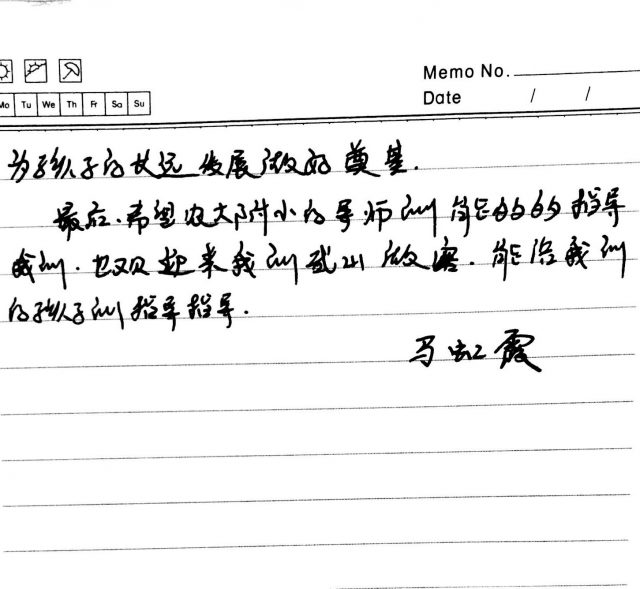 Memo No.
Date / /
Mo Tu We Th Fr Sa Su
为孩子的长远发展做好奠基.
最后.希望农大附小的导师们能多多的指导
我们.也欢迎来我们武山做客.能给我们
的孩子们指导指导.
马虹霞